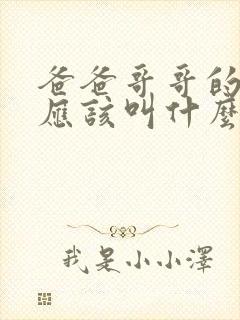 爸爸哥哥的
應該叫什麼
我是小小澤